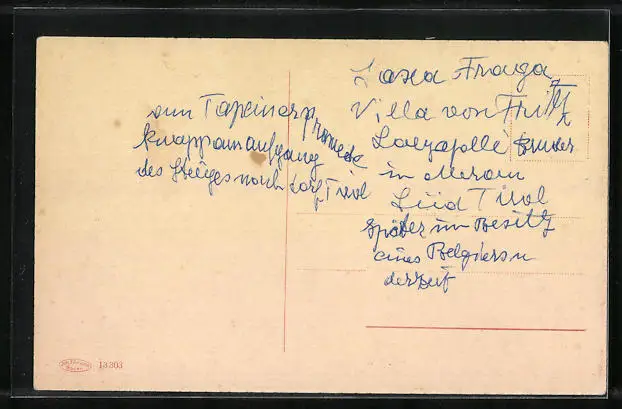 am Tapeinerpromede
knapp am aufgang
des Steiges nach dorf Tirol
Casa Fraga
Villa von Fritz
bruder
in Meran
Süd Tirol
Später im Besitz
eines Belgiers
derzeit
13 303